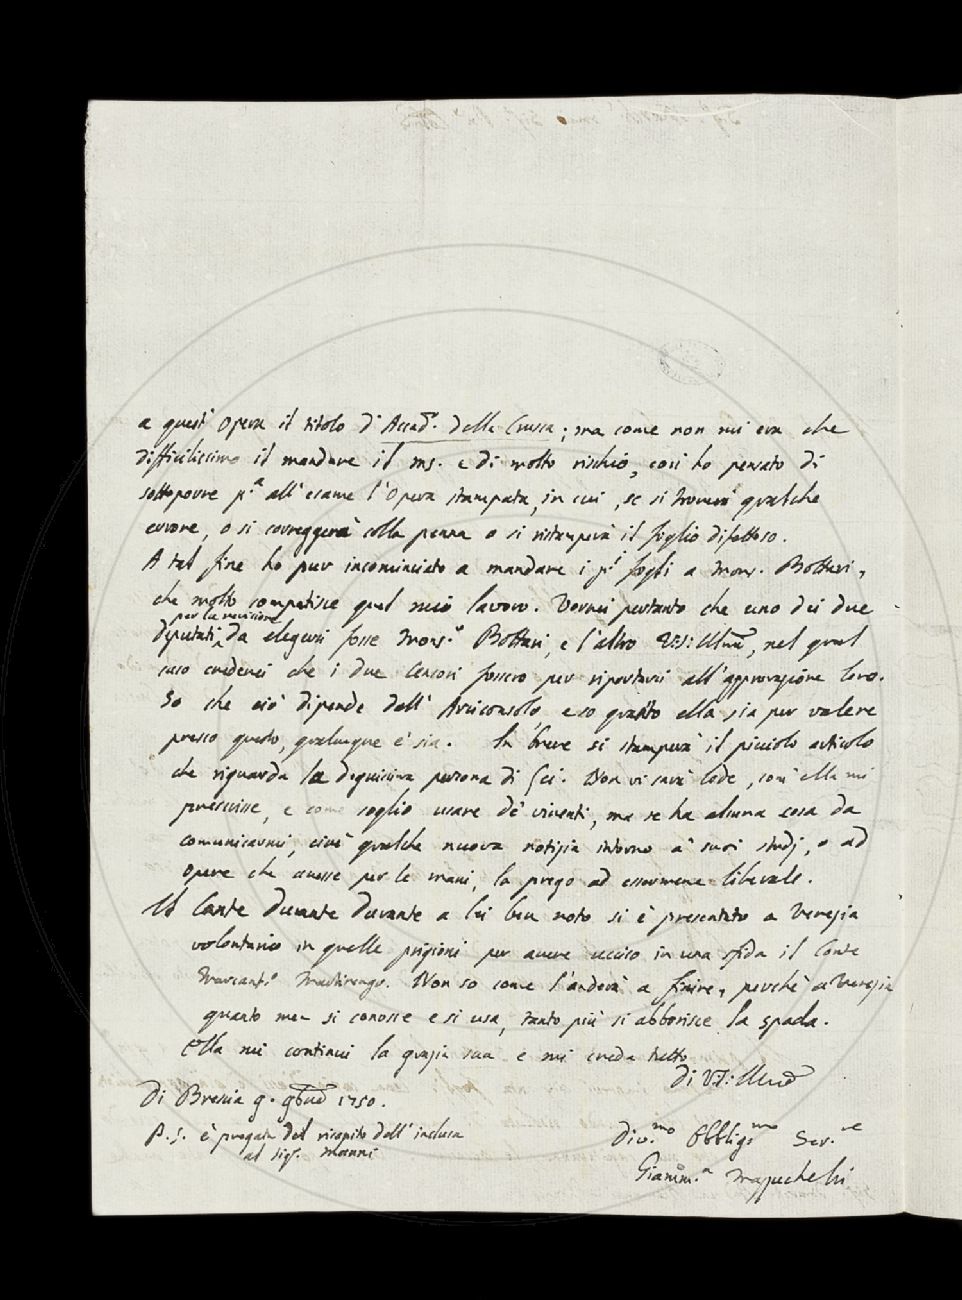 a quest' Opera il titolo d'Accad. della Crusca; ma come non mi era che
difficilissimo il mandare il ms. e di molto rischio, così ho pensato di
sottoporre p.a all'esame l'Opera stampata, in cui, se si troverà qualche
errore, o si correggerà colla penna o si ristamperà il foglio difettoso.
A tal fine ho pur incominciato a mandare i p.i fogli a Mons. Bottari,
che molto compatisce quel mio lavoro. Vorrei pertanto che uno dei due
per la revisione
deputati da elegersi fosse Mons.r Bottari, e l'altro VS: Illma, nel qual
caso crederei che i due Censori fossero per riportarsi all'approvazione loro.
So che ciò dipende dall' Arciconsolo, e so quanto ella sia per valere
presso questo, qualunque e' sia. In breve si stamperà il picciolo articolo
che riguarda la degnissima persona di Lei. Non vi sarà lode, così ella mi
prescrisse, e come soglio usare de' viventi, ma se ha alcuna cosa da
comunicarmi, cioè qualche nuova notizia intorno a' suoi studj, o ad
Opere che avesse per le mani, la prego ad essermene liberale.
Il Conte Durante Durante a lei ben noto si è presentato a Venezia
volontario in quelle prigioni per avere ucciso in una sfida il Conte
Marcant.o Martinengo. Non so come l'anderà a finire, perchè a Venezia
quanto men si conosce e si usa, tanto più si abborisce la spada.
Ella mi continui la grazia sua e mi creda tutto
di VS: Illma
Di Brescia 9. 9bre 1750.
P.S. è pregata del ricapito dell' inclusa
al Sig. Manni
Div.mo Obblig.mo Ser.re
Giamm.a Mazzuchelli